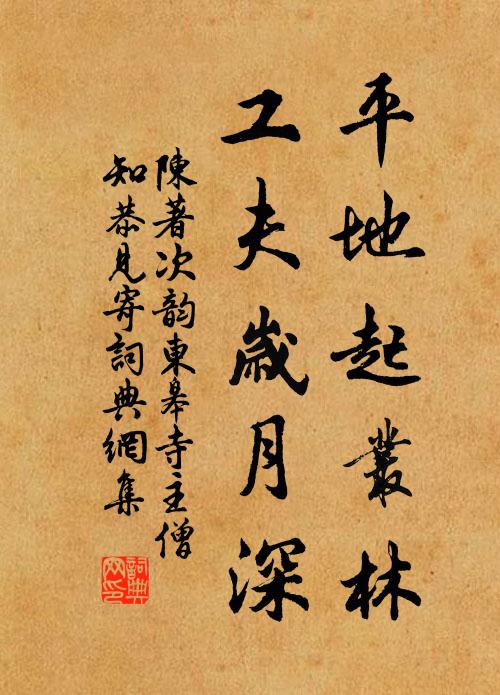 平地起叢林
工夫歲月深
陳著次韵東皋寺主僧
知恭見寄詞典網集
詞典网印